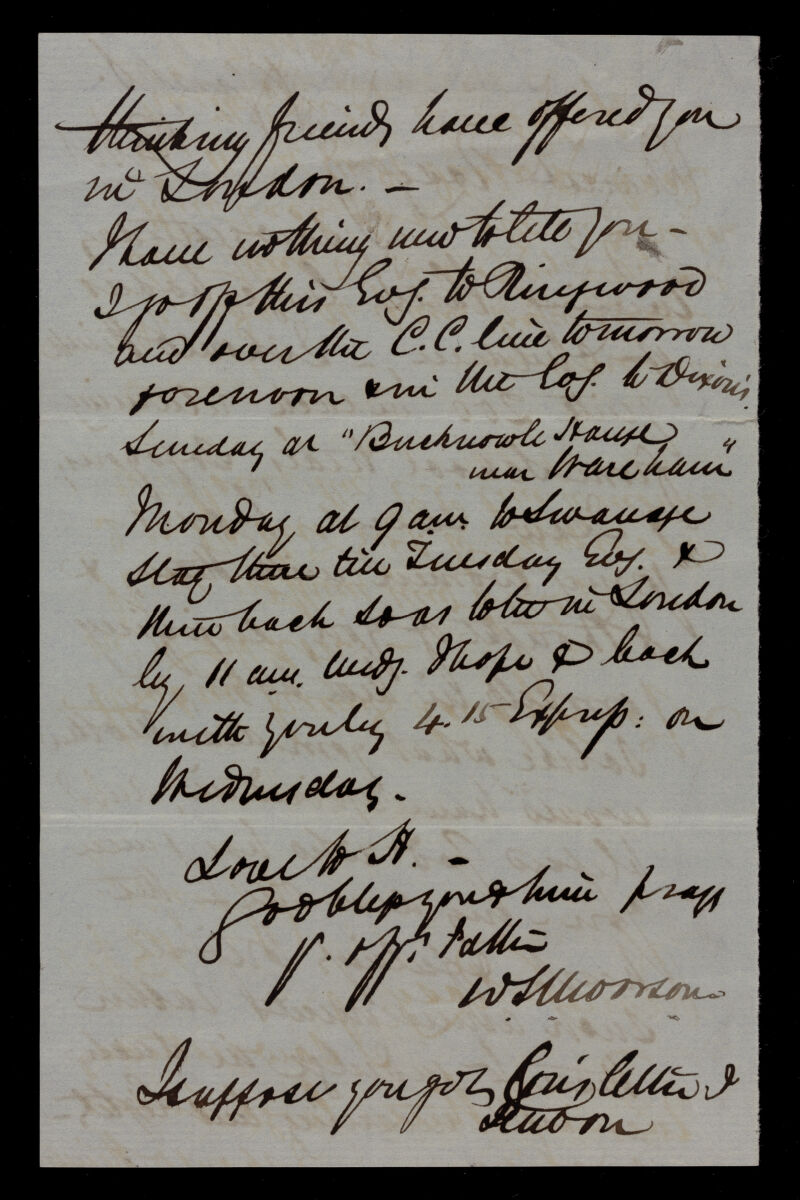 thinking friends have offered you
in London. –
I have nothing new to tell you –
I go off this Evg. to Ringwood
and over the C.C. line tomorrow
forenoon & in the Evg. to Dixon's.
Sunday at "Bucknowle House
near Wareham"
Monday at 9 am. to Swansea
stay there till Tuesday Evg. &
then back so as to be in London
by 11 am. Wedy. I hope & back
with you by 4.15 Express: on
Wednesday.
Love to H. –
God bless you & him prays
yr. afft. Father
W S Moorsom
I suppose you got letter I
sent on